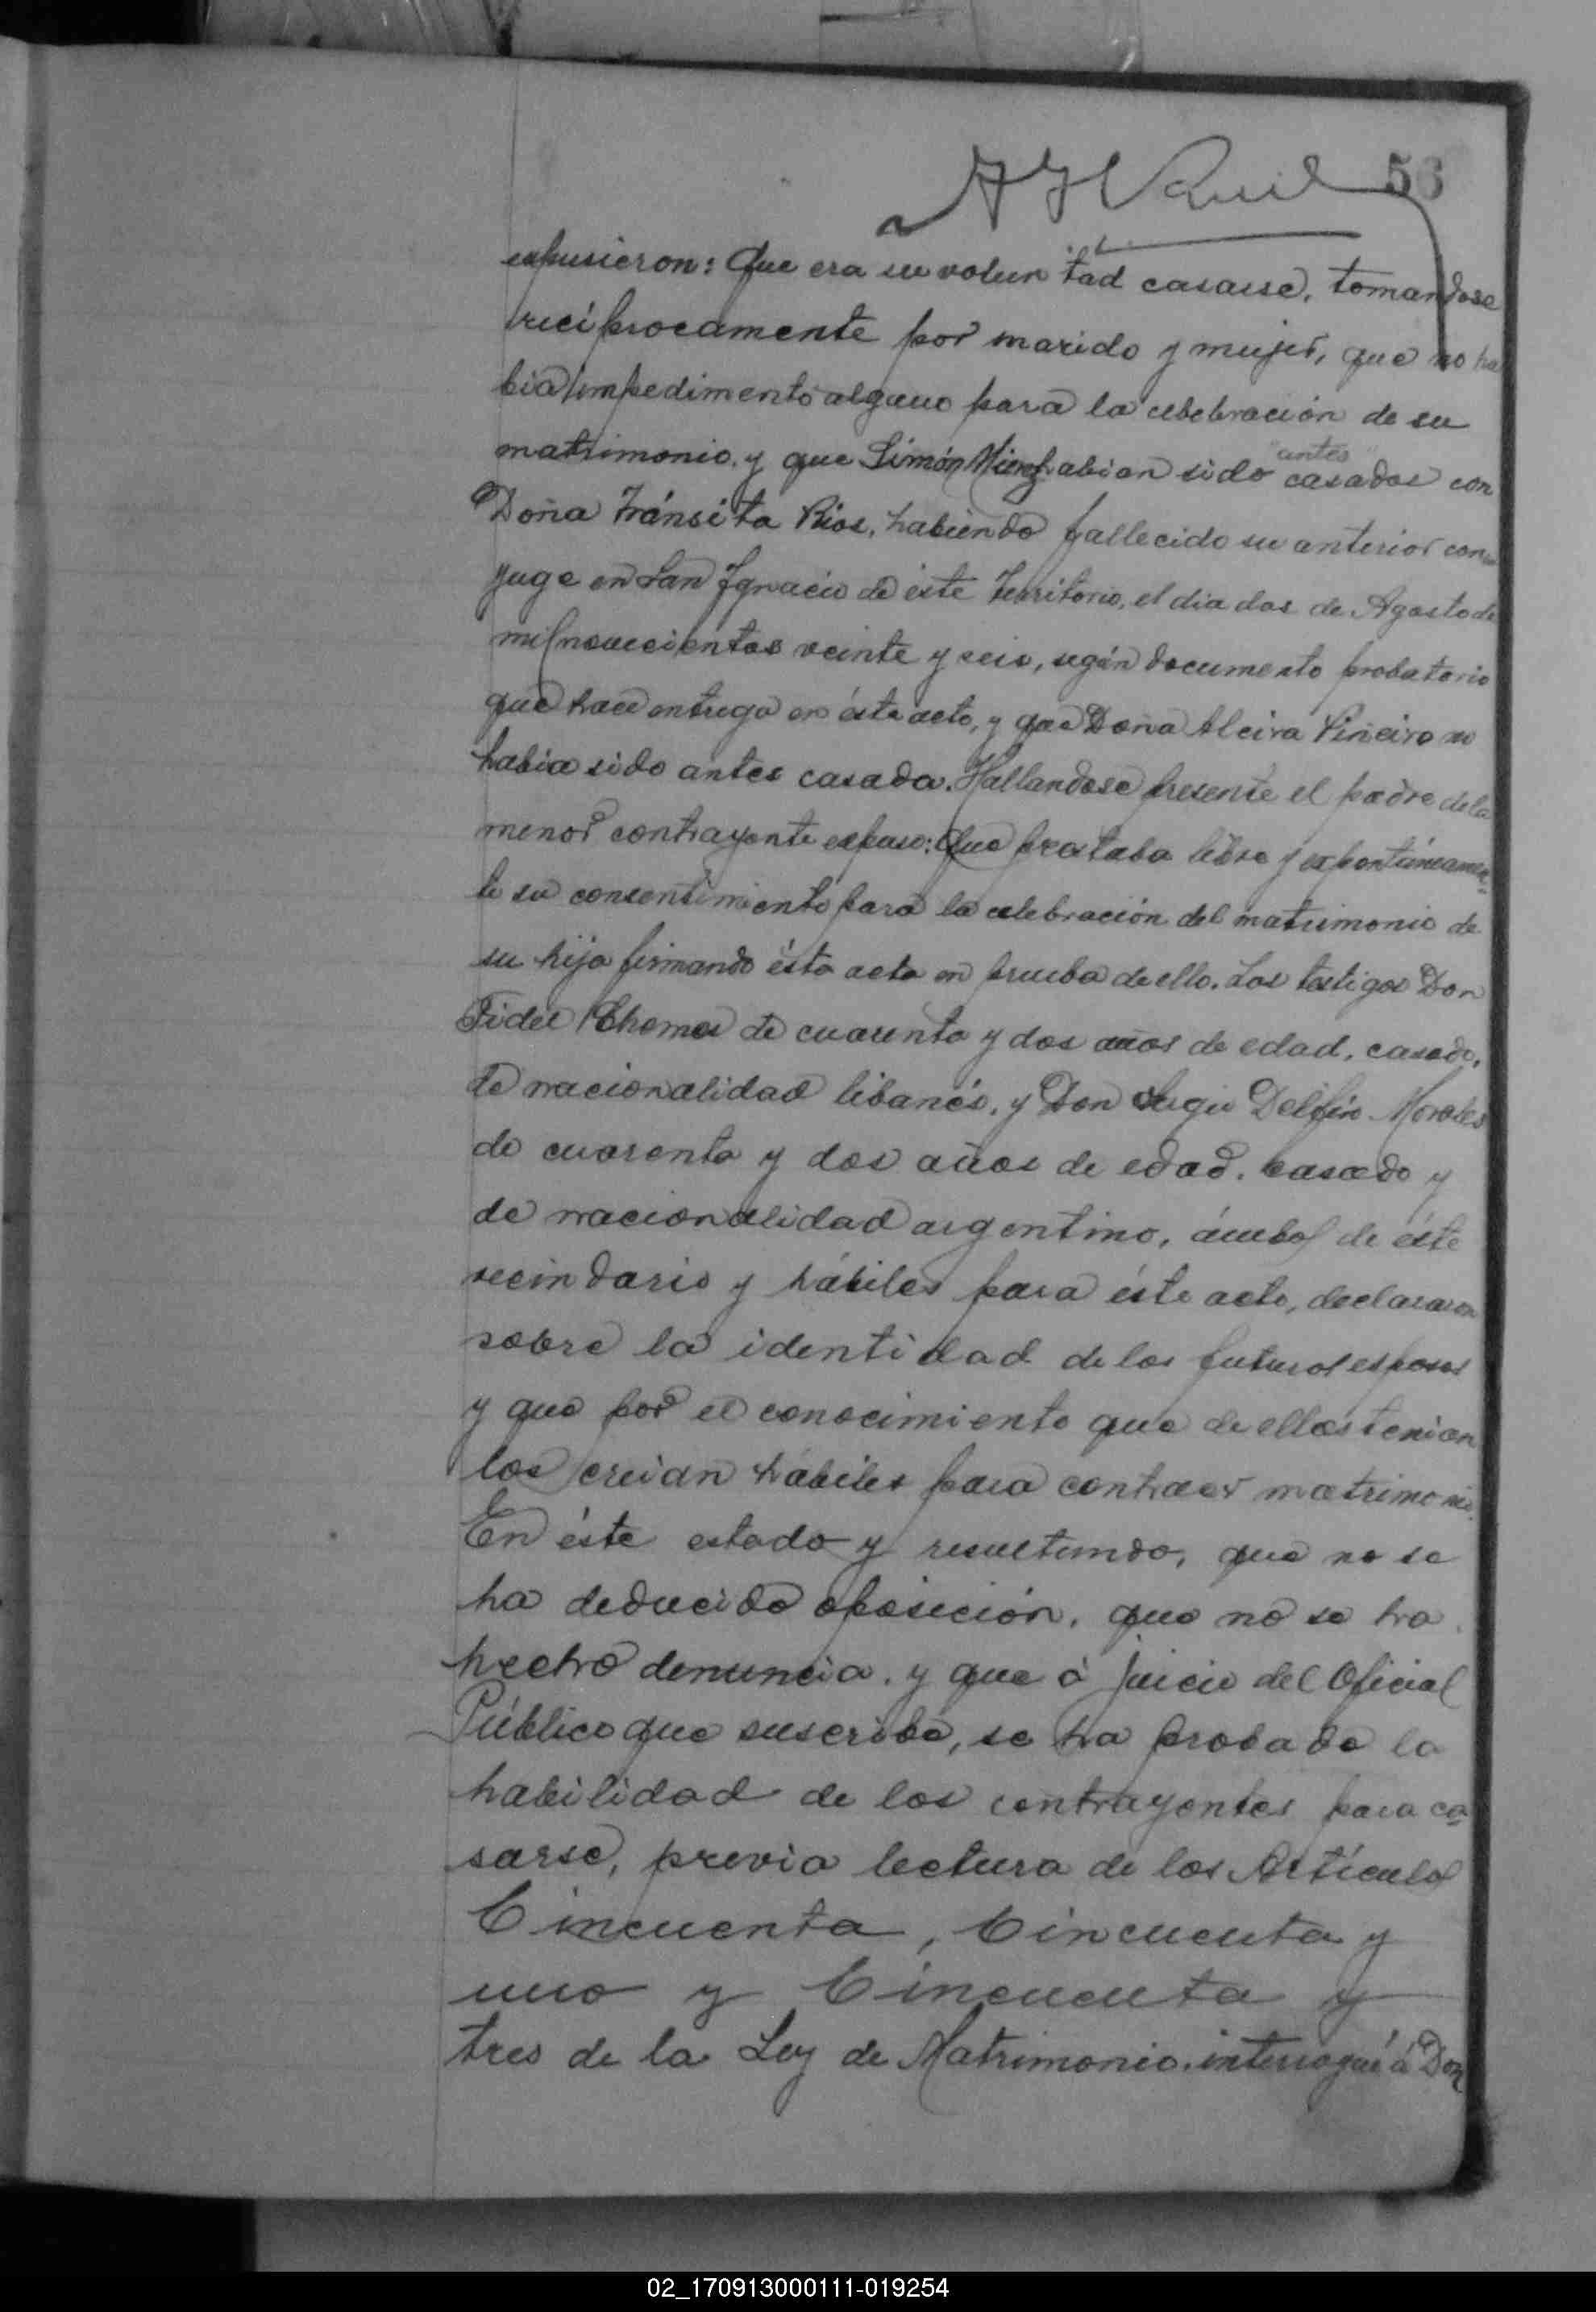 56
expusieron: Que era su voluntad casarse, tomandose
recíprocamente por marido y mujer, que no ha
bia impedimento alguno para la celebración de su
"antes"
matrimonio, y que Simón habian sido casados con
Doña Tránsita Rios, habiendo fallecido su anterior con
yuge en San Ignacio de éste Territorio, el dia dos de Agosto de
mil novecientos veinte y seis, según documento probatorio
que hace entrega en éste acto, y que Doña Alcira Piñeiro no
habia sido antes casada. Hallandose presente el padre de la
menor contrayente expuso: Que prestaba libre y expontáneamen
te su consentimiento para la celebración del matrimonio de
su hija firmando ésta acta en prueba de ello. Los testigos Don
Fidel Chemes de cuarenta y dos años de edad, casado,
de nacionalidad libanés, y Don Delfin Morales
de cuarenta y dos años de edad, casado y
de nacionalidad argentino, ámbos de éste
vecindario y hábiles para éste acto, declararon
sobre la identidad de los futuros esposos
y que por el conocimiento que de ellos tenian
los creian hábiles para contraer matrimonio.
En éste estado y resultando, que no se
ha deducido oposición, que no se ha
hecho denuncia, y que á juicio del Oficial
Público que suscribe, se ha probado la
habilidad de los contrayentes para ca
sarse, previa lectura de los Artículos
Cincuenta, Cincuenta y
uno y Cincuenta y
tres de la Ley de Matrimonio, interrogué á Don
02_170913000111-019254